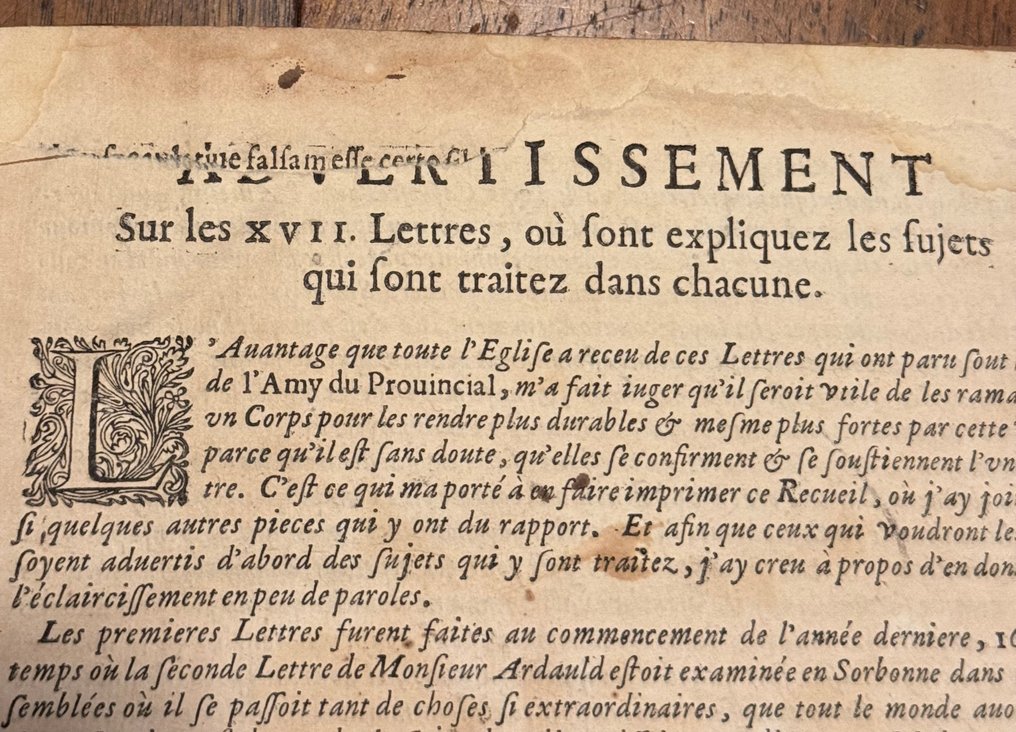 tuie falsam esse certo
ADVERTISSEMENT
Sur les XVII. Lettres, où ſont expliquez les ſujets
qui ſont traitez dans chacune.
L'Auantage que toute l'Egliſe a receu de ces Lettres qui ont paru ſout
de l'Amy du Prouincial, m'a fait iuger qu'il ſeroit vtile de les rama
vn Corps pour les rendre plus durables & meſme plus fortes par cette
parce qu'il eſt ſans doute, qu'elles ſe confirment & ſe ſouſtiennent l'vn
tre. C'eſt ce qui ma porté à en faire imprimer ce Recueil, où j'ay joi
ſi quelques autres pieces qui y ont du rapport. Et afin que ceux qui voudront le
ſoyent aduertis d'abord des ſujets qui y ſont traitez, j'ay creu à propos d'en don
l'éclairciſſement en peu de paroles.
Les premieres Lettres furent faites au commencement de l'année derniere, 16
temps où la ſeconde Lettre de Monſieur Ardauld eſtoit examinée en Sorbonne dans
ſemblées où il ſe paſſoit tant de choſes ſi extraordinaires, que tout le monde auo